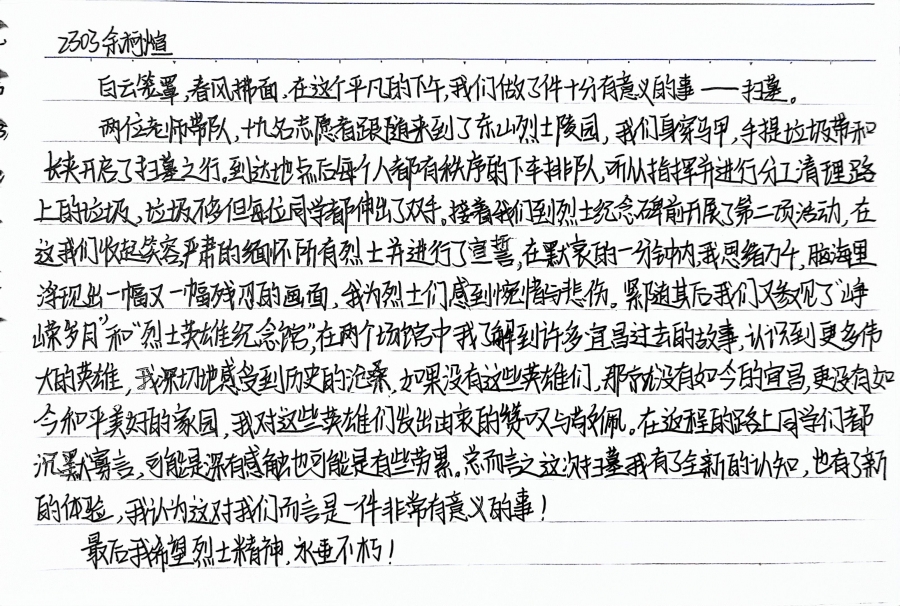 2303 余柯煊
白云笼罩,春风拂面,在这个平凡的下午,我们做了件十分有意义的事——扫墓。
两位老师带队,十九名志愿者跟随来到了东山烈士陵园,我们身穿马甲,手提垃圾带和
长夹开启了扫墓之行。到达地点后每个人都有秩序的下车排队,听从指挥并进行分工清理路
上的垃圾,垃圾不多但每位同学都伸出了双手。接着我们到烈士纪念碑前开展了第二项活动,在
这我们收起笑容,严肃的缅怀所有烈士并进行了宣誓,在默哀的一分钟内,我思绪万千,脑海里
浮现出一幅又一幅残忍的画面,我为烈士们感到惋惜与悲伤。紧随其后我们又参观了“峥
嵘岁月”和“烈士英雄纪念馆”,在两个场馆中我了解到许多宜昌过去的故事,认识到更多伟
大的英雄,我深切地感受到历史的沧桑,如果没有这些英雄们,那就没有如今的宜昌,更没有如
今和平美好的家园,我对这些英雄们发出由衷的赞叹与敬佩。在返程的路上同学们都
沉默寡言,可能是深有感触也可能是有些劳累。总而言之这次扫墓我有了全新的认知,也有了新
的体验,我认为这对我们而言是一件非常有意义的事!
最后我希望烈士精神,永垂不朽!